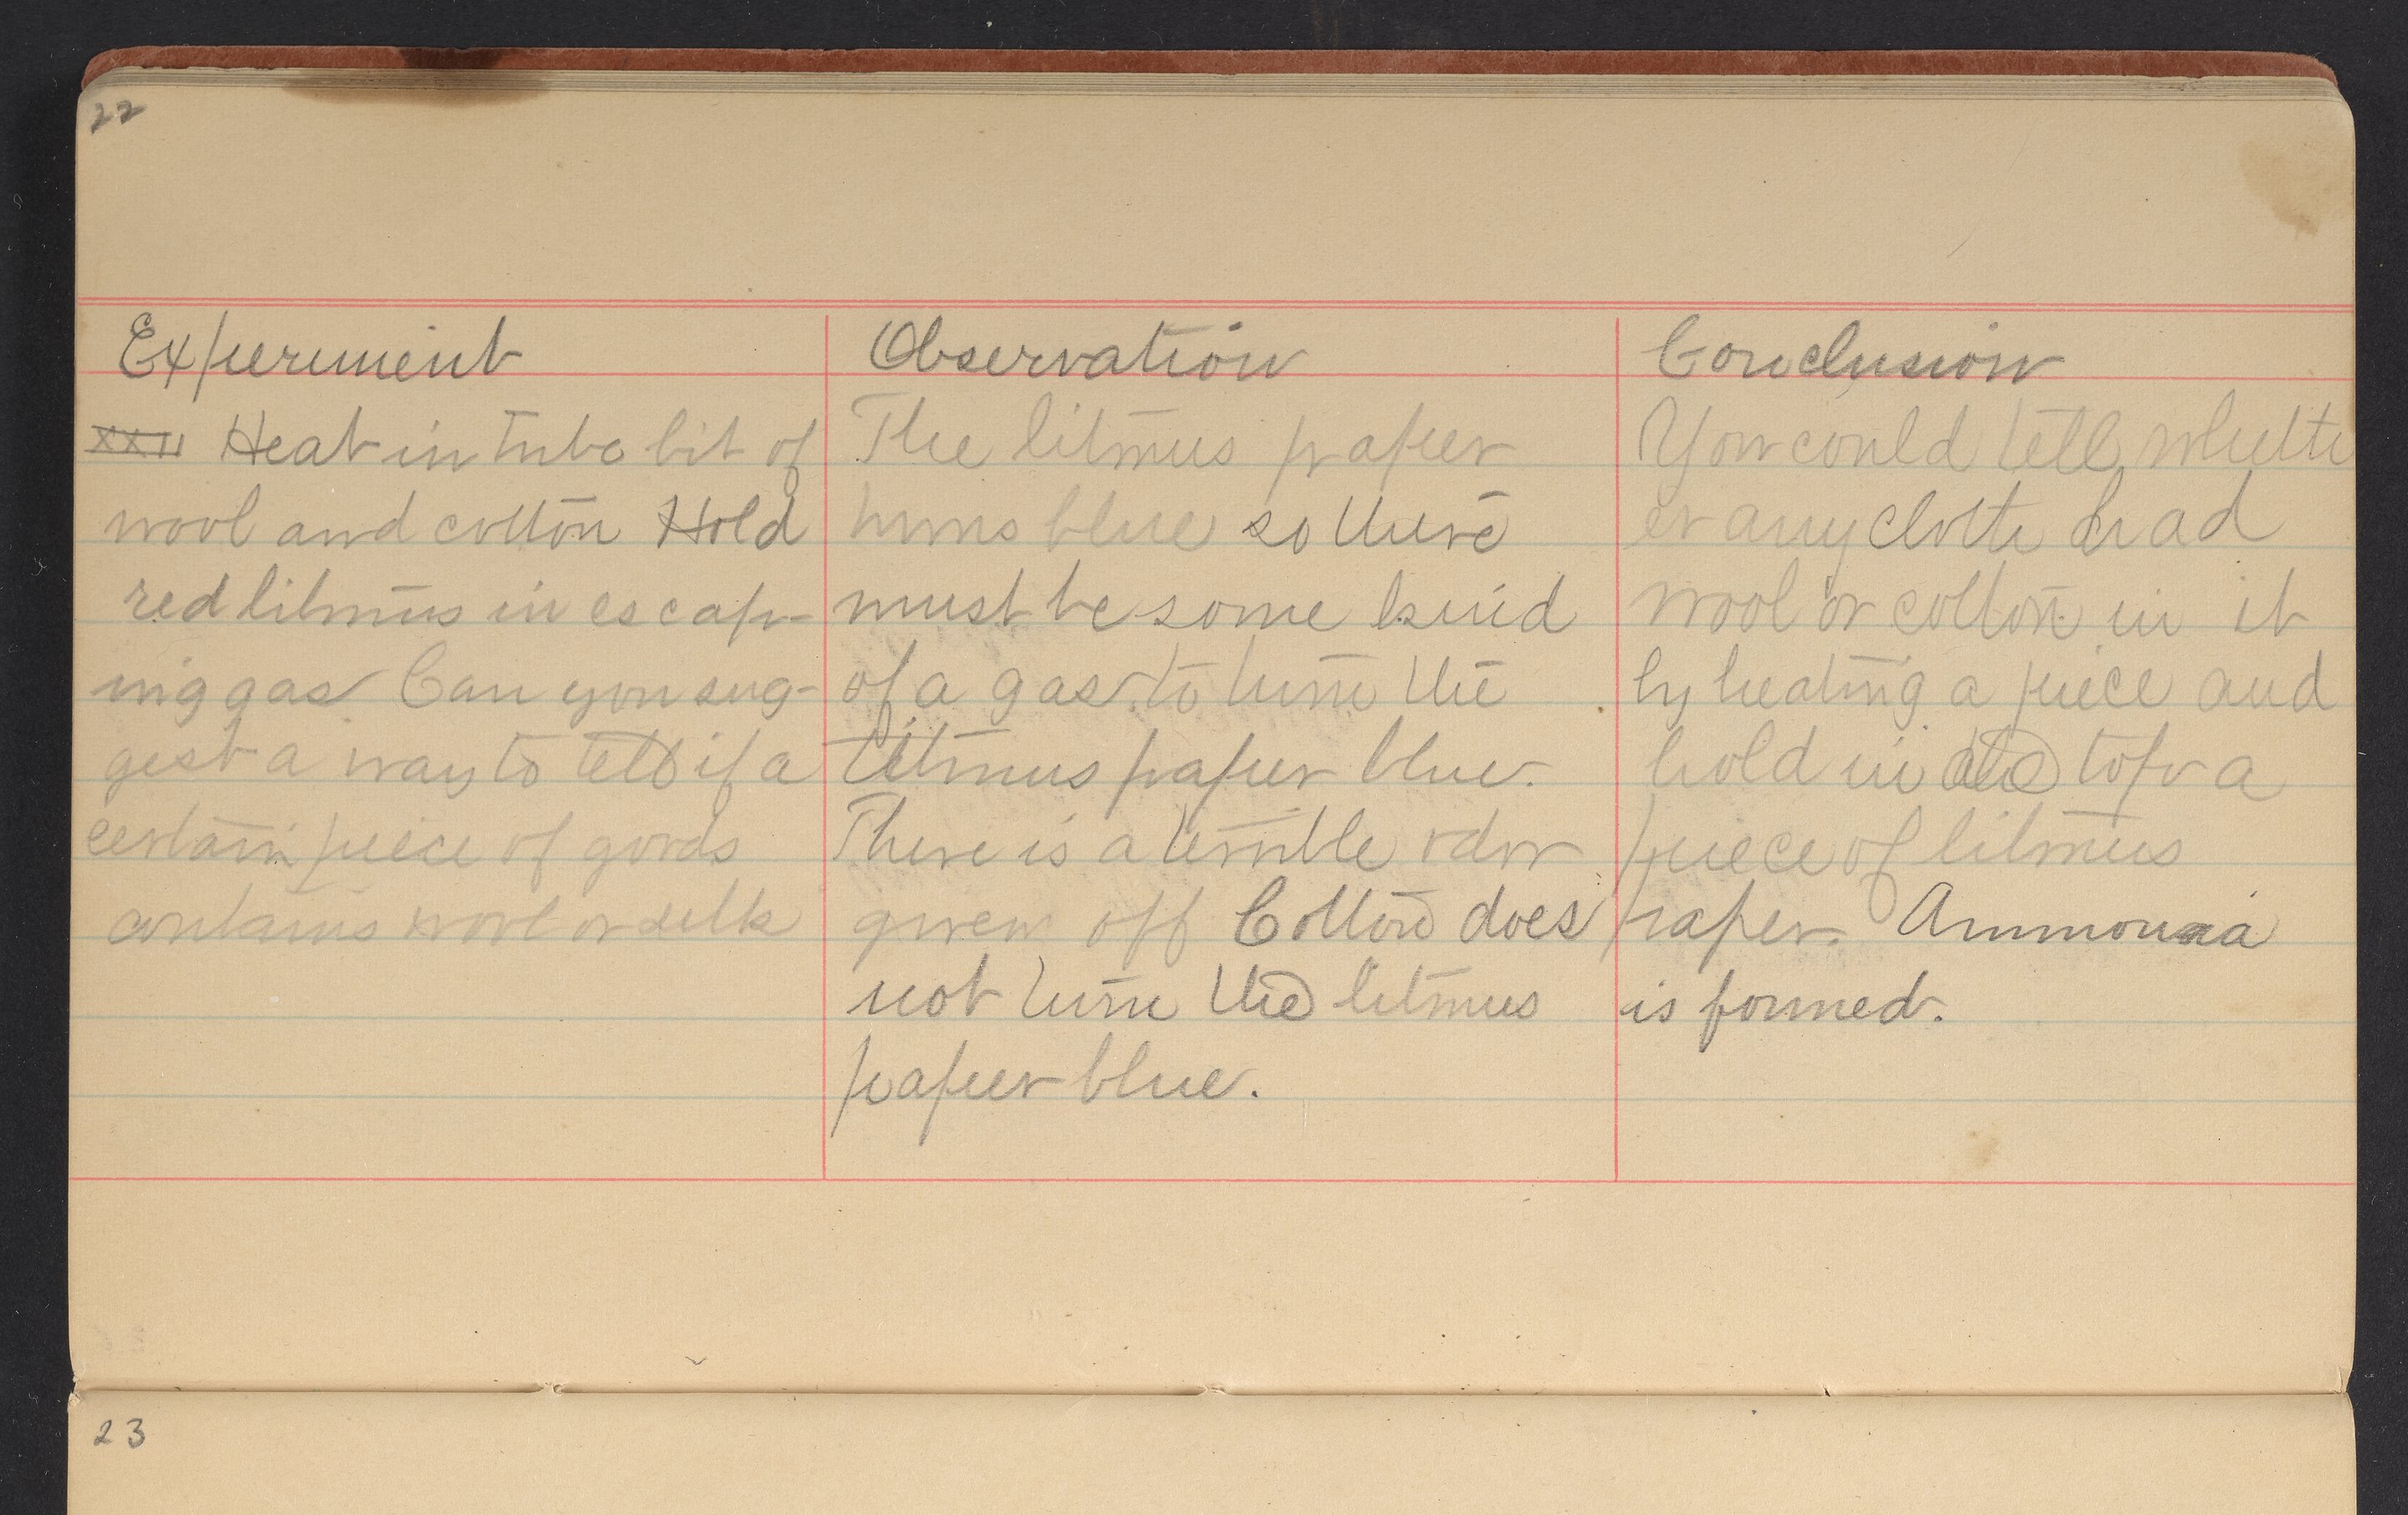 22
Experiment
XXII Heat in tube bit of
wool and cotton Hold
red litmus in escap-
ing gas Can you sug-
gest a way to tell if a
certain piece of goods
contains wool or silk
Observation
The litmus paper
turns blue so there
must be some kind
of a gas to turn the
litmus paper blue.
There is a terrible odor
given off Cotton does
not turn the litmus
paper blue.
Conclusion
You could tell wheth
er any cloth had
wool or cotton in it
by heating a piece and
hold in the top a
piece of litmus
paper. Ammonia
is formed.
23